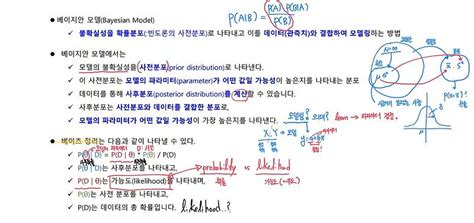 ● 베이지안 모델(Bayesian Model)
➢ 불확실성을 확률분포(빈도론의 사전분포)로 나타내고 이를 데이터(관측치)와 결합하여 모델링하는 방법
P(A|B) = P(A) P(B|A) / P(B)
● 베이지안 모델에서는
➢ 모델의 불확실성을 사전분포(prior distribution)로 나타낸다.
➢ 이 사전분포는 모델의 파라미터(parameter)가 어떤 값일 가능성이 높은지를 나타내는 분포
➢ 데이터를 통해 사후분포(posterior distribution)를 계산할 수 있습니다.
➢ 사후분포는 사전분포와 데이터를 결합한 분포로,
➢ 모델의 파라미터가 어떤 값일 가능성이 높은지를 나타냅니다.
● 베이즈 정리는 다음과 같이 나타낼 수 있다.
➢ P(θ | D) = P(D | θ) * P(θ) / P(D)
➢ P(θ | D)는 사후 분포를 나타내고,
➢ P(D | θ)는 가능도(likelihood)를 나타내며,
➢ P(θ)는 사전 분포를 나타내고,
➢ P(D)는 데이터의 총 확률입니다.
probability vs likelihood
확률
likelihood..?
X : Y
y = a+bx
learn